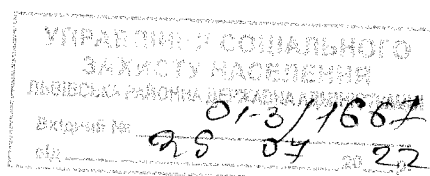 УПРАВЛІННЯ СОЦІАЛЬНОГО
ЗАХИСТУ НАСЕЛЕННЯ
ЛЬВІВСЬКА РАЙОННА ДЕРЖАВНА АДМІНІСТРАЦІЯ
Вхідний № 01-3/1667
від 25 07 2022 р.